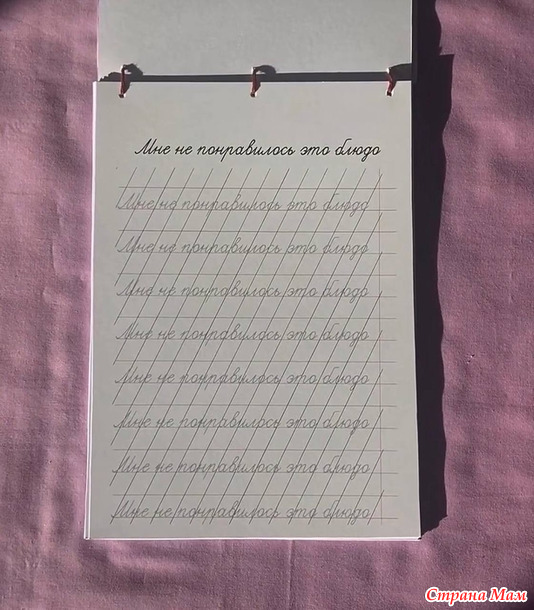 Мне не понравилось это блюдо
Мне не понравилось это блюдо
Мне не понравилось это блюдо
Мне не понравилось это блюдо
Мне не понравилось это блюдо
Мне не понравилось это блюдо
Мне не понравилось это блюдо
Мне не понравилось это блюдо
Мне не понравилось это блюдо
Страна Мам